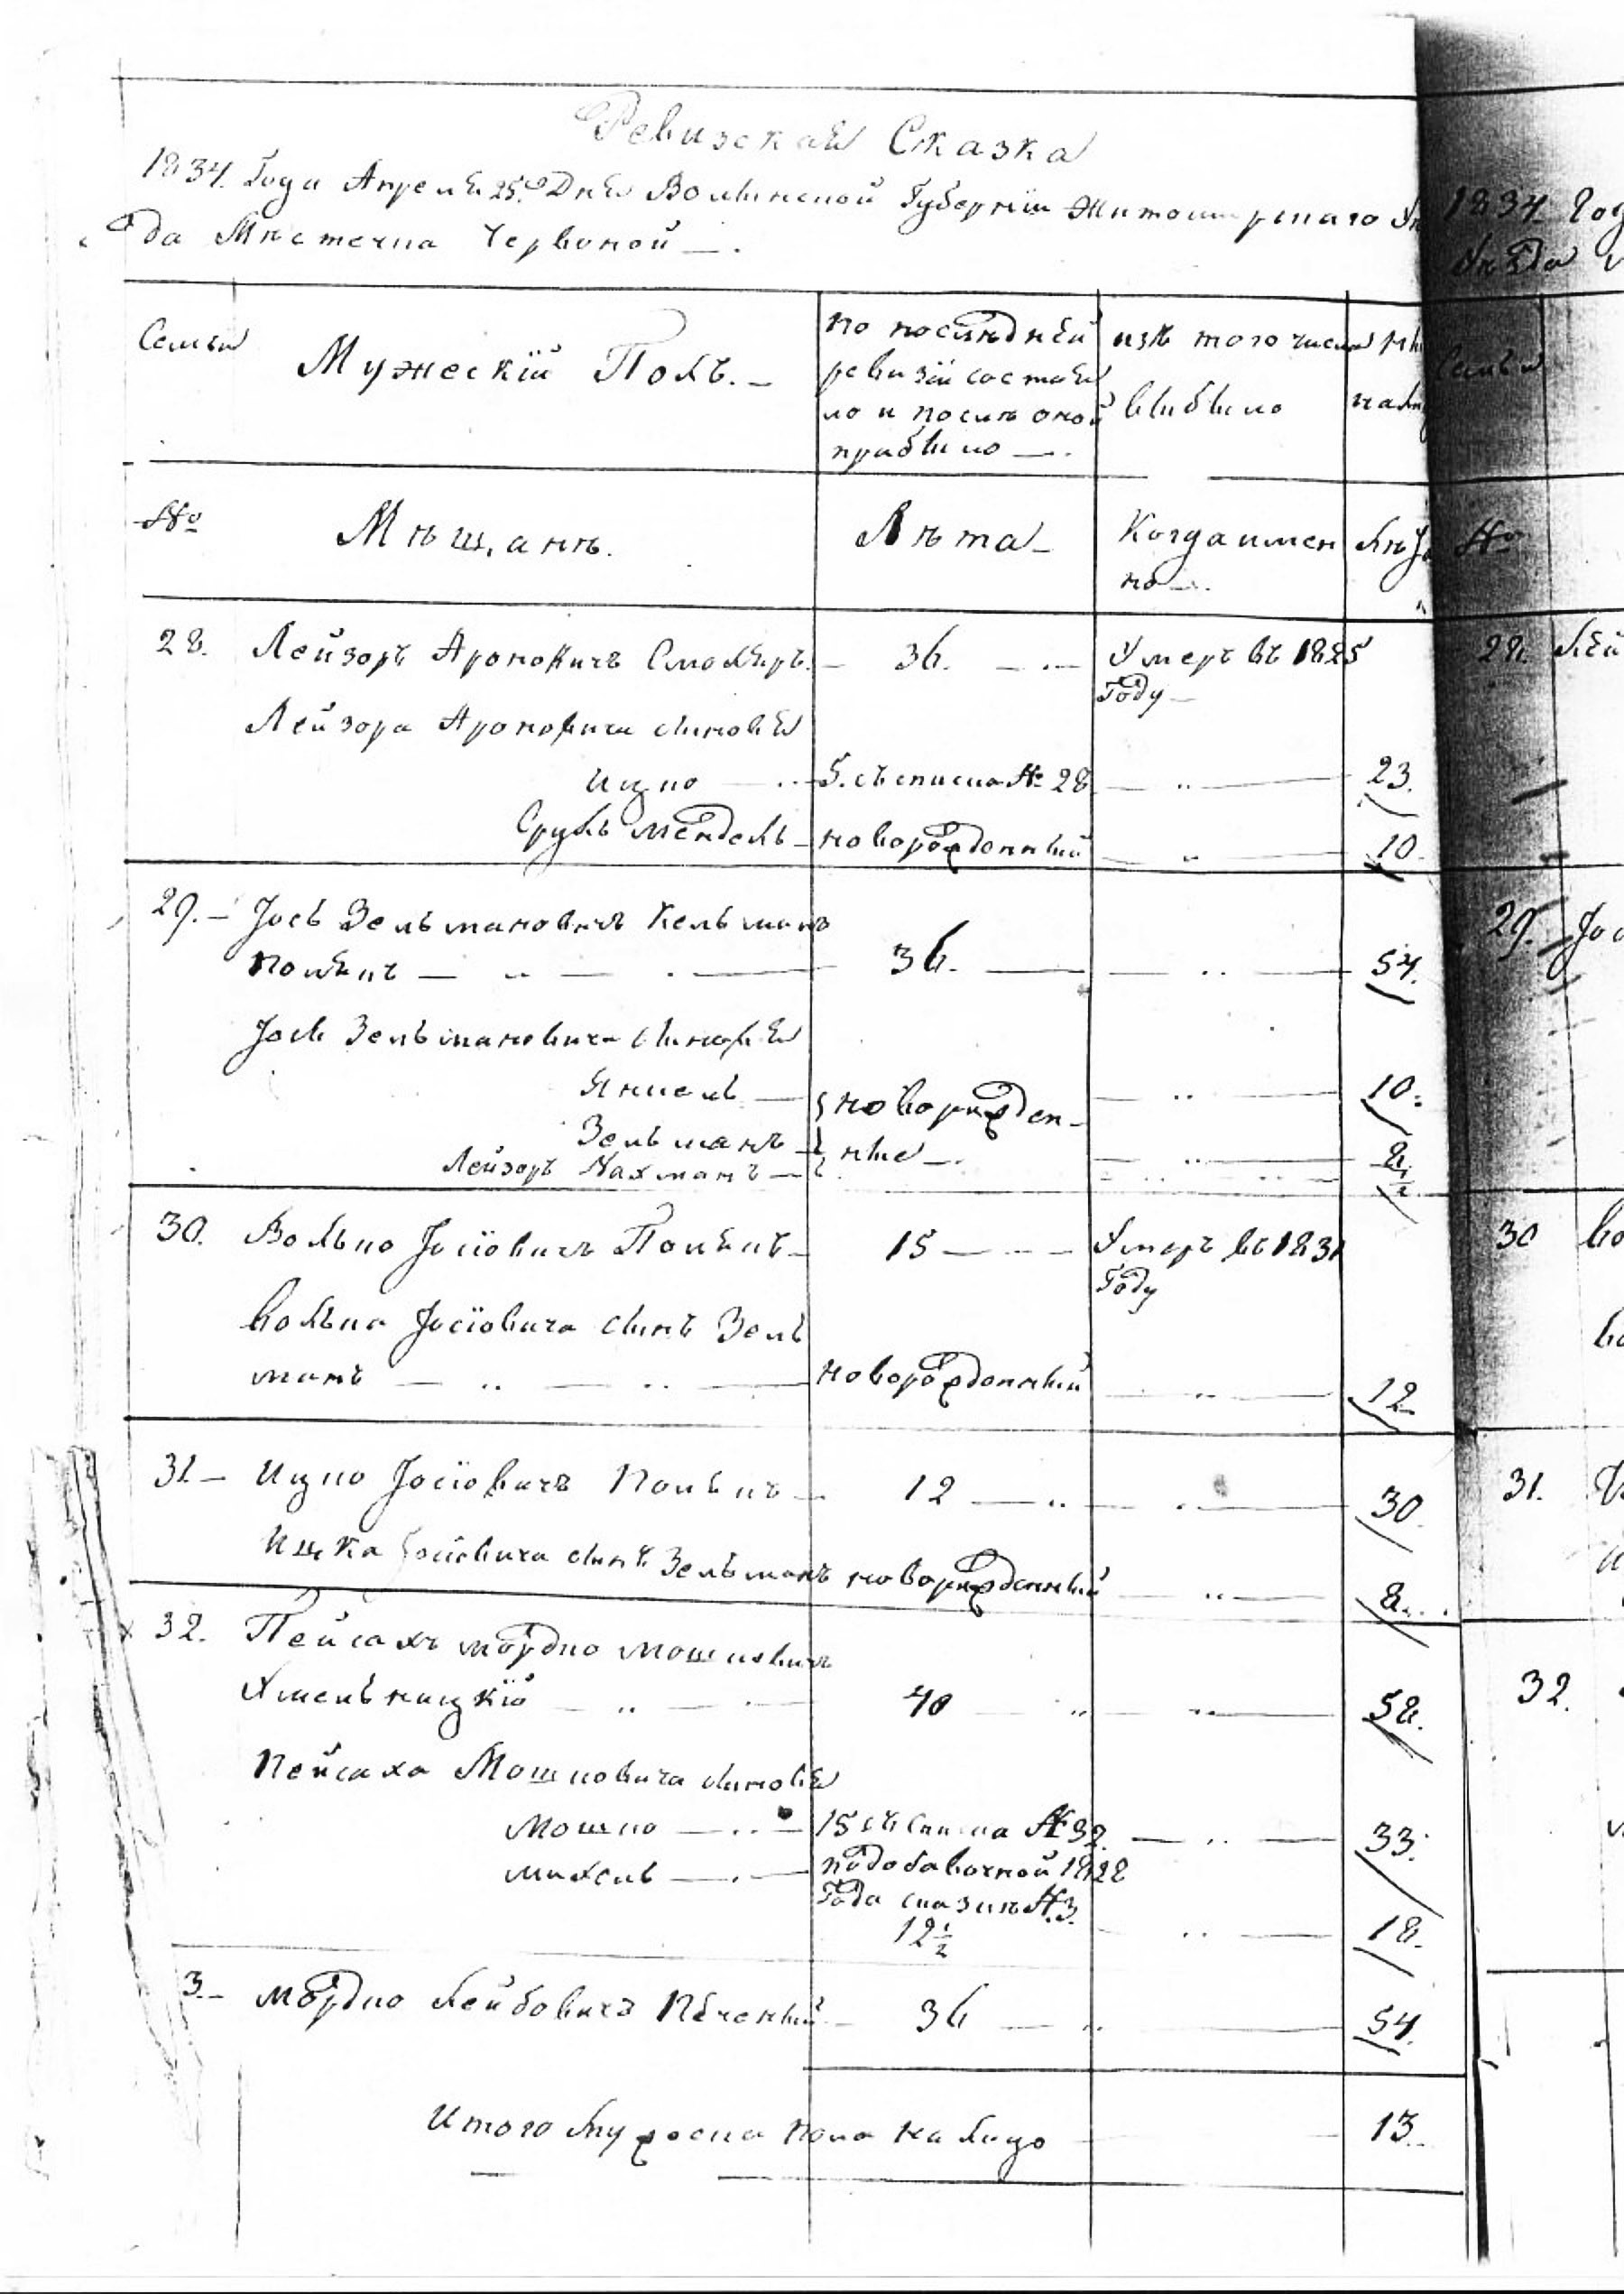 Ревизская Сказка
1834. Года Апреля 25го Дня Волынской Губернїи Житомирскаго Уѣ
зда Мѣстечка Червоной —.
Семьи
Мужескїй Полъ. —
по последней
ревизїи состоя
ло и послѣ оной
прибыло —.
изъ того числа
выбыло
нынѣ
нали
№
Мѣщанѣ.
Лѣта —
Когда имен
но —.
Лѣта
28. Лейзоръ Ароновичъ Смоляръ. — 36. — Умеръ въ 1825
Году —
Лейзора Ароновича сыновья
Ицко — 5. съ списка № 28 — 23.
Сруль Мендель — новорожденный — 10
29. — Іось Зельмановичъ Кельманъ
Полякъ — 36. — 54.
Іося Зельмановича сыновья
Янкель — новорожден- 10.
Зельманъ — ные —. 8
Лейзоръ Нахманъ — 1/2
30. Волько Іосїовичъ Полякъ — 15 — Умеръ въ 1831
Году
Волька Іосїовича сынъ Зель
манъ — новорожденный — 12
31. — Ицко Іосїовичъ Полякъ — 12 — 30.
Ицка Іосїовича сынъ Зельманъ новорожденный — 8.
32. Пейсахъ Мордко Мошковичъ
Хмельницкїй — 40 — 58.
Пейсаха Мошковича сыновья
Мошко — 15 съ списка № 32. — 33.
Михель — по добавочной 1828
Года сказкѣ №.3.
12 1/2 — 18.
3. — Мордко Лейбовичъ Печеный — 36 — 54.
Итого Мужеска пола на лицо 13.
1834 Год
Уѣзда
Семьи
№
28. Лей
29. Іос
30 Во
Во
31.
32.